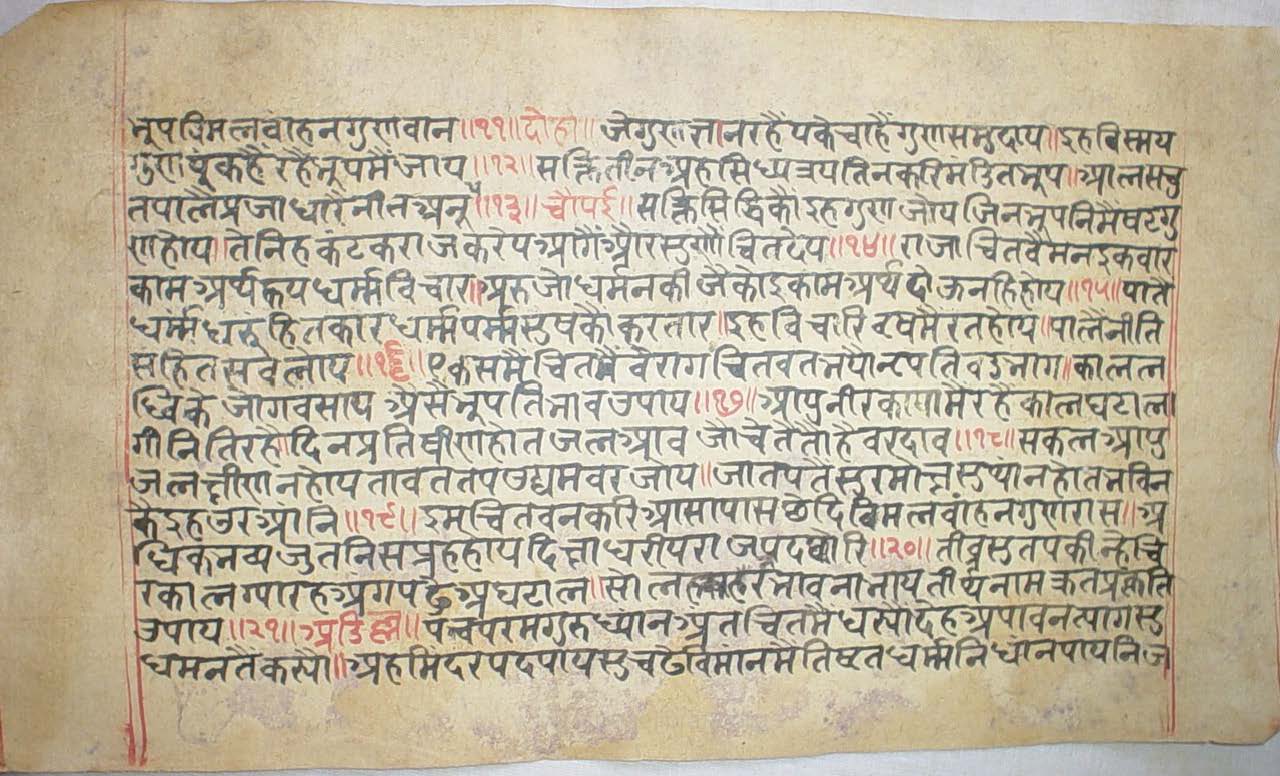 भूप विमलवाहन गुणवान ॥११॥ दोहा॥ जे गुण ज्ञान रहैं पके चाहैं गुण समुदाय॥ इह विस्मय
गुण युक्त है रहै भूप मै जाय ॥१२॥ सक्ति तीन अरु सिध्य त्रय तिन करि मंडित भूप॥ आलस चु
त पालै प्रजा धारै नीत अनूप॥१३॥ चौपई॥ सक्ति सिद्धि कौ इह गुण जोय जिन भूपनि मै षट गु
ण होय॥ ते निह कंटक राज करेय आगैं और सुणौ चित देय॥१४॥ राजा चितवै मन इक वार
काम अर्थ त्रय धर्म्म विचार॥ अरु जो धर्म न कीजै कोइ काम अर्थ दोऊ नहि होय॥१५॥ पातै
धर्म्म धरूं हितकार धर्म्म पर्म्म सुष कौ करतार॥ इह विचारि वृषमै रत होय॥ पालै नीति
सहित सब लोय॥१६॥ एक समै चित मै वैराग चितवत भयौ नृपति वडभाग॥ काल ल
ब्धि के जोग वसाय औसै भूपति भाव उपाय॥१७॥ आयु नीर काया मै रहै काल घटाल
गी निति रहै दिन प्रति षीण होत जल आव जो चेतै तौ है वर दाव॥१८॥ सकल आयु
जल क्षीण न होय तावत तप उद्यम वर जोय॥ जा तप तै सुर मोक्ष सुथान होत भविन
कै इह उर आनि॥१९॥ इम चितवन करि आसा पास छेदि विमलवाहन गुणरास॥ अ
धिक नव्य जुत निसप्रह होय दिक्षा धरी प राज पद षोरि॥२०॥ तीव्र सु तप कीन्है चि
रकाल ग्यारह अंग पढे अघ टाल॥ सोलह भावना भाय तीर्थ नाम क्रत प्रकृति
उपाय॥२१॥ अडिल्ल॥ पंच परम गुरु ध्यान अंत चित मै धस्यौ देह अपावन त्याग सु
धमन तै कस्यौ॥ अहमिंदर पद पाय सु चढे विमान मै तिष्टत धर्म्म निधान पाय निज